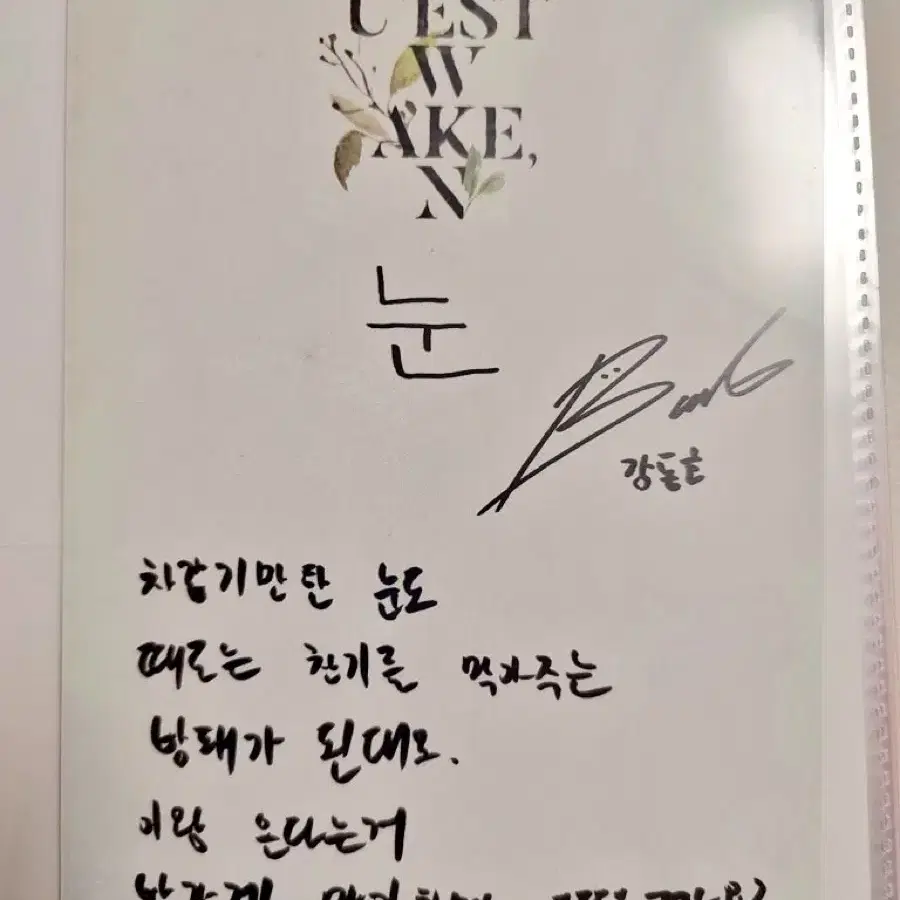 U'EST
W
AKE,
N
눈
강동호
차갑기만 한 눈도
때로는 한기를 막아주는
방패가 된대요.
이왕 온다는거